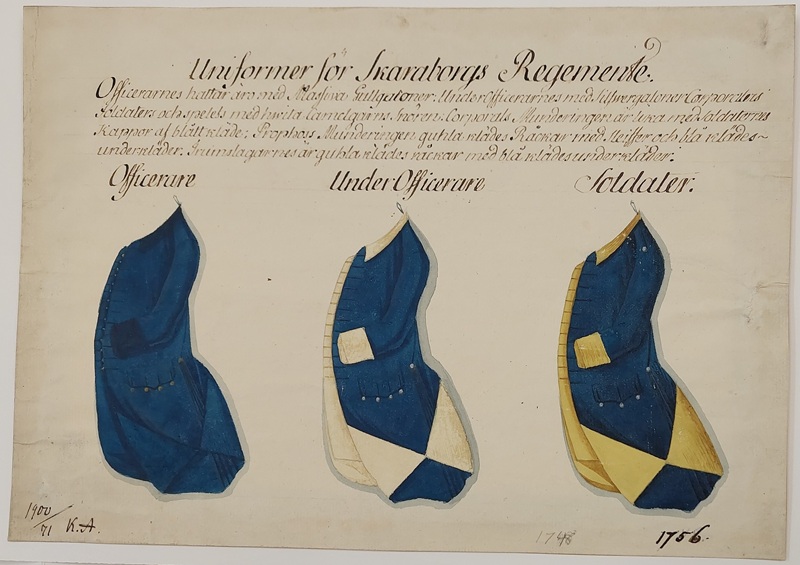 Uniformer för Skaraborgs Regemente.
Officerarnes hattar äro med Massiva Gullgaloner: UnderOfficerarnes med Silfwergaloner Corporalens
Soldaters och spelets med hwita Camelgarns Snoren: Corporals Munderingen är lika med Soldaternas
Kappor af blått kläde: Profhoss Munderingen guhla klädes Råckar med Sleiffer och blå klädes~
underkläder. Trumslagarnes är guhla klädes råckar med blå klädes underkläder.
Officerare UnderOfficerare Soldater.
1900/71 K.A. 1748 1756.